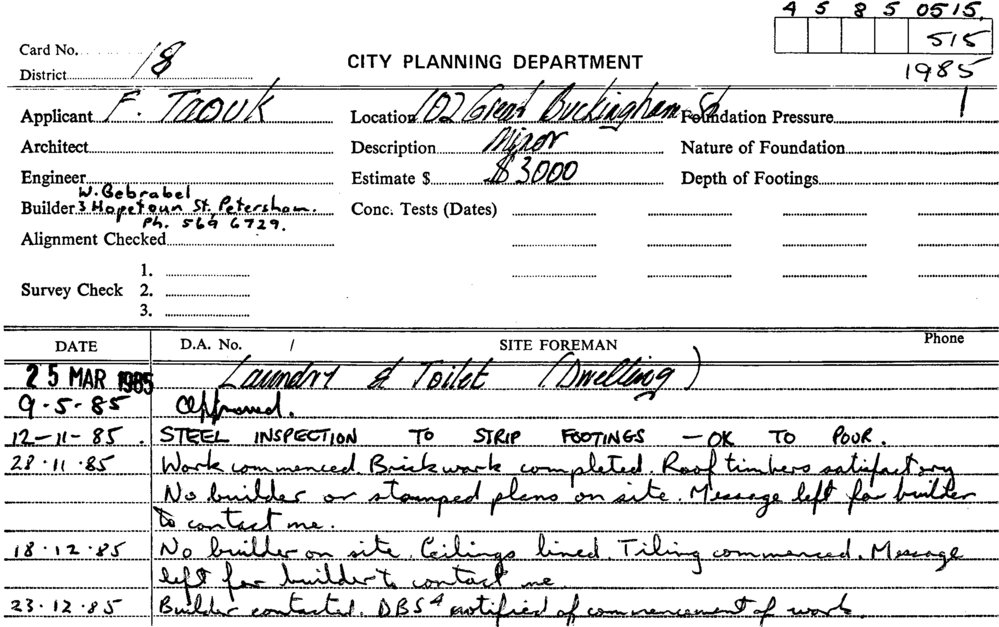 4 5 8 5 0515.
515
1985
Card No. 18
District
CITY PLANNING DEPARTMENT
Applicant F. Taouk Location 102 Great Buckingham St Foundation Pressure 1
Architect Description Minor Nature of Foundation
Engineer Estimate $ $3000 Depth of Footings
W. Gebrabel
Builder 3 Hopetoun St. Petersham. Conc. Tests (Dates)
Ph. 569 6729.
Alignment Checked
1.
Survey Check 2.
3.
DATE D.A. No. / SITE FOREMAN Phone
25 MAR 1985 Laundry & Toilet (Dwelling)
9.5.85 Approved.
12-11-85. STEEL INSPECTION TO STRIP FOOTINGS - OK TO POUR.
28.11.85 Work commenced. Brickwork completed. Roof timbers satisfactory
No builder or stamped plans on site. Message left for builder
to contact me.
18.12.85 No builder on site. Ceilings lined. Tiling commenced. Message
left for builder to contact me.
23.12.85 Builder contacted. DBS4 notified of commencement of work